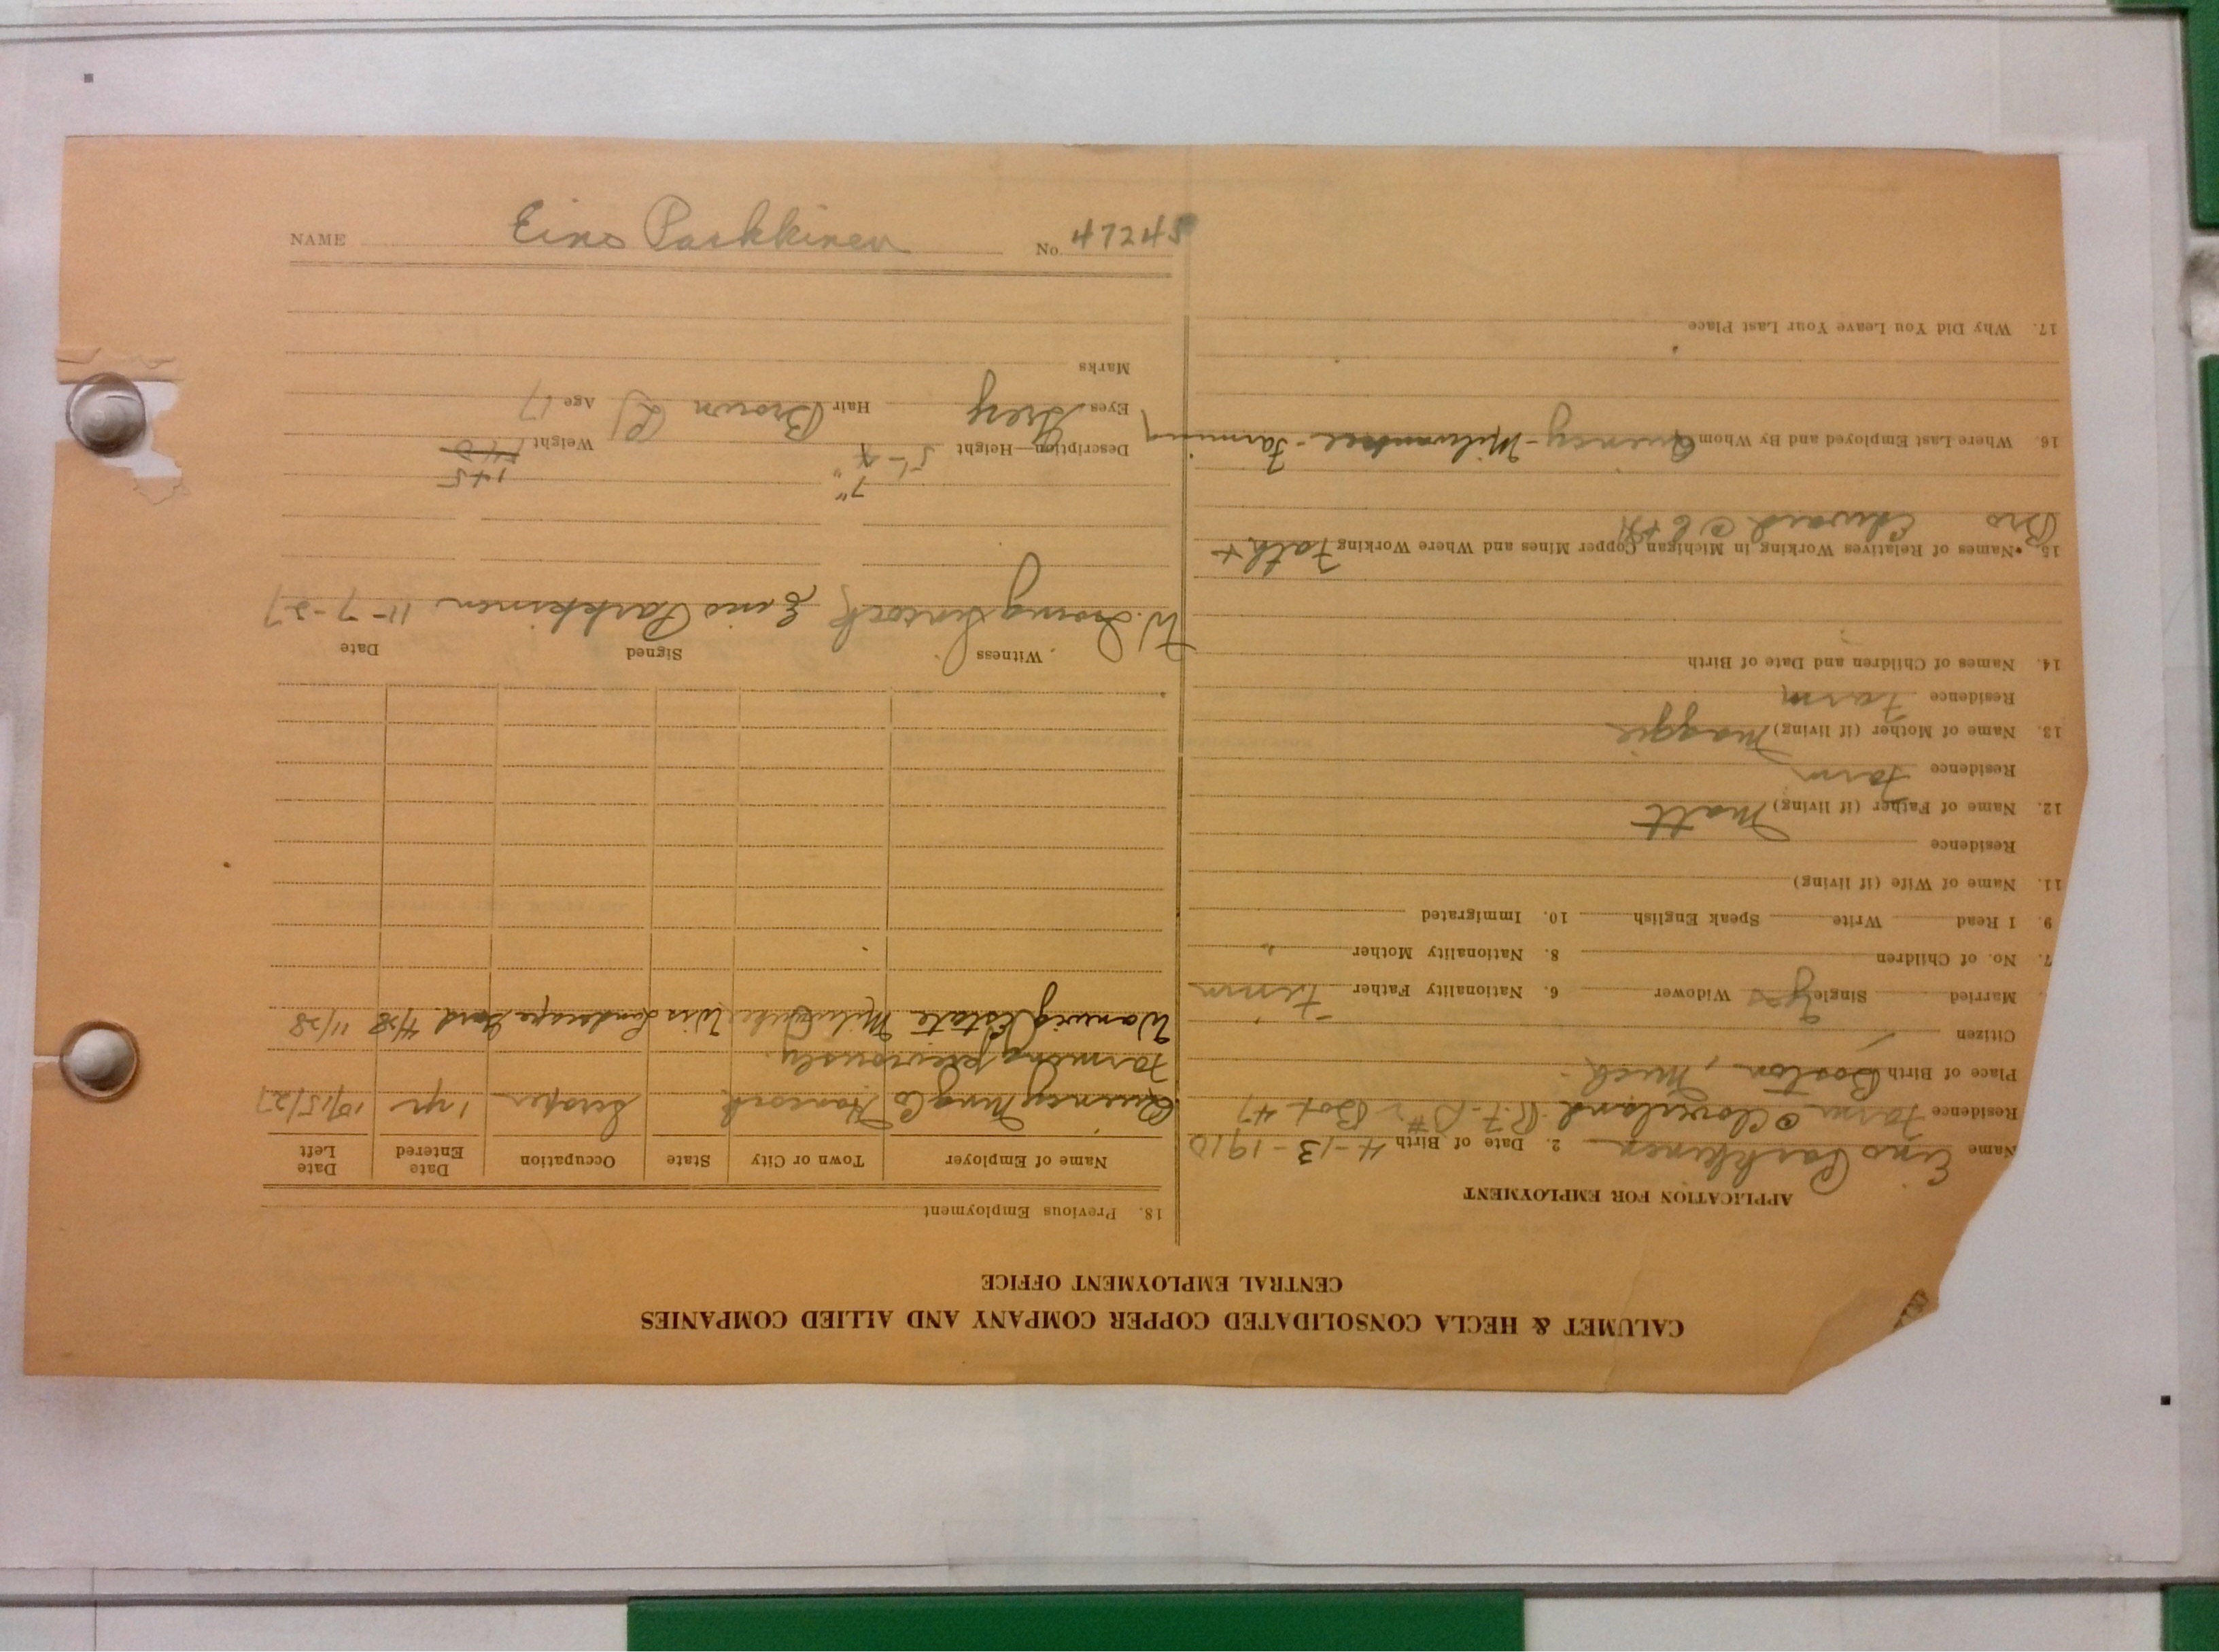 CALUMET & HECLA CONSOLIDATED COPPER COMPANY AND ALLIED COMPANIES
CENTRAL EMPLOYMENT OFFICE
APPLICATION FOR EMPLOYMENT
Name Eino Parkkinen 2. Date of Birth 4-13-1910
Residence Farm @ Cloverland R.F.D# Box 47
Place of Birth Boston, Mich.
Citizen
Married Single yes Widower 6. Nationality Father Finn
7. No. of Children 8. Nationality Mother "
9. I Read Write Speak English 10. Immigrated
11. Name of Wife (if living)
Residence
12. Name of Father (if living) Matt
Residence Farm
13. Name of Mother (if living) Maggie
Residence Farm
14. Names of Children and Date of Birth
15. Names of Relatives Working in Michigan Copper Mines and Where Working Fath +
Bro Edward @ C+H
16. Where Last Employed and By Whom Quincy - Milwaukee - Farming
17. Why Did You Leave Your Last Place
18. Previous Employment
Name of Employer Town or City State Occupation Date Entered Date Left
Quincy Mng Co Hancock 1 yr 10/15/27
Farming previously
Estate Milwaukee Wis Landscape Gard 4/28 11/28
Witness Signed Date
W. Irving Eino Parkkinen 11-7-27
7" 145
Description—Height 5'-4 Weight 140
Eyes Grey Hair Brown Age 17
Marks
NAME Eino Parkkinen No. 47245